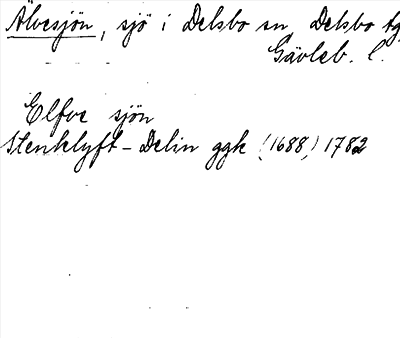 Älvesjön, sjö i Delsbo sn Delsbo tg
Gävleb. l.
Elfve sjön
Stenklyft - Delin ggk (1688) 1782